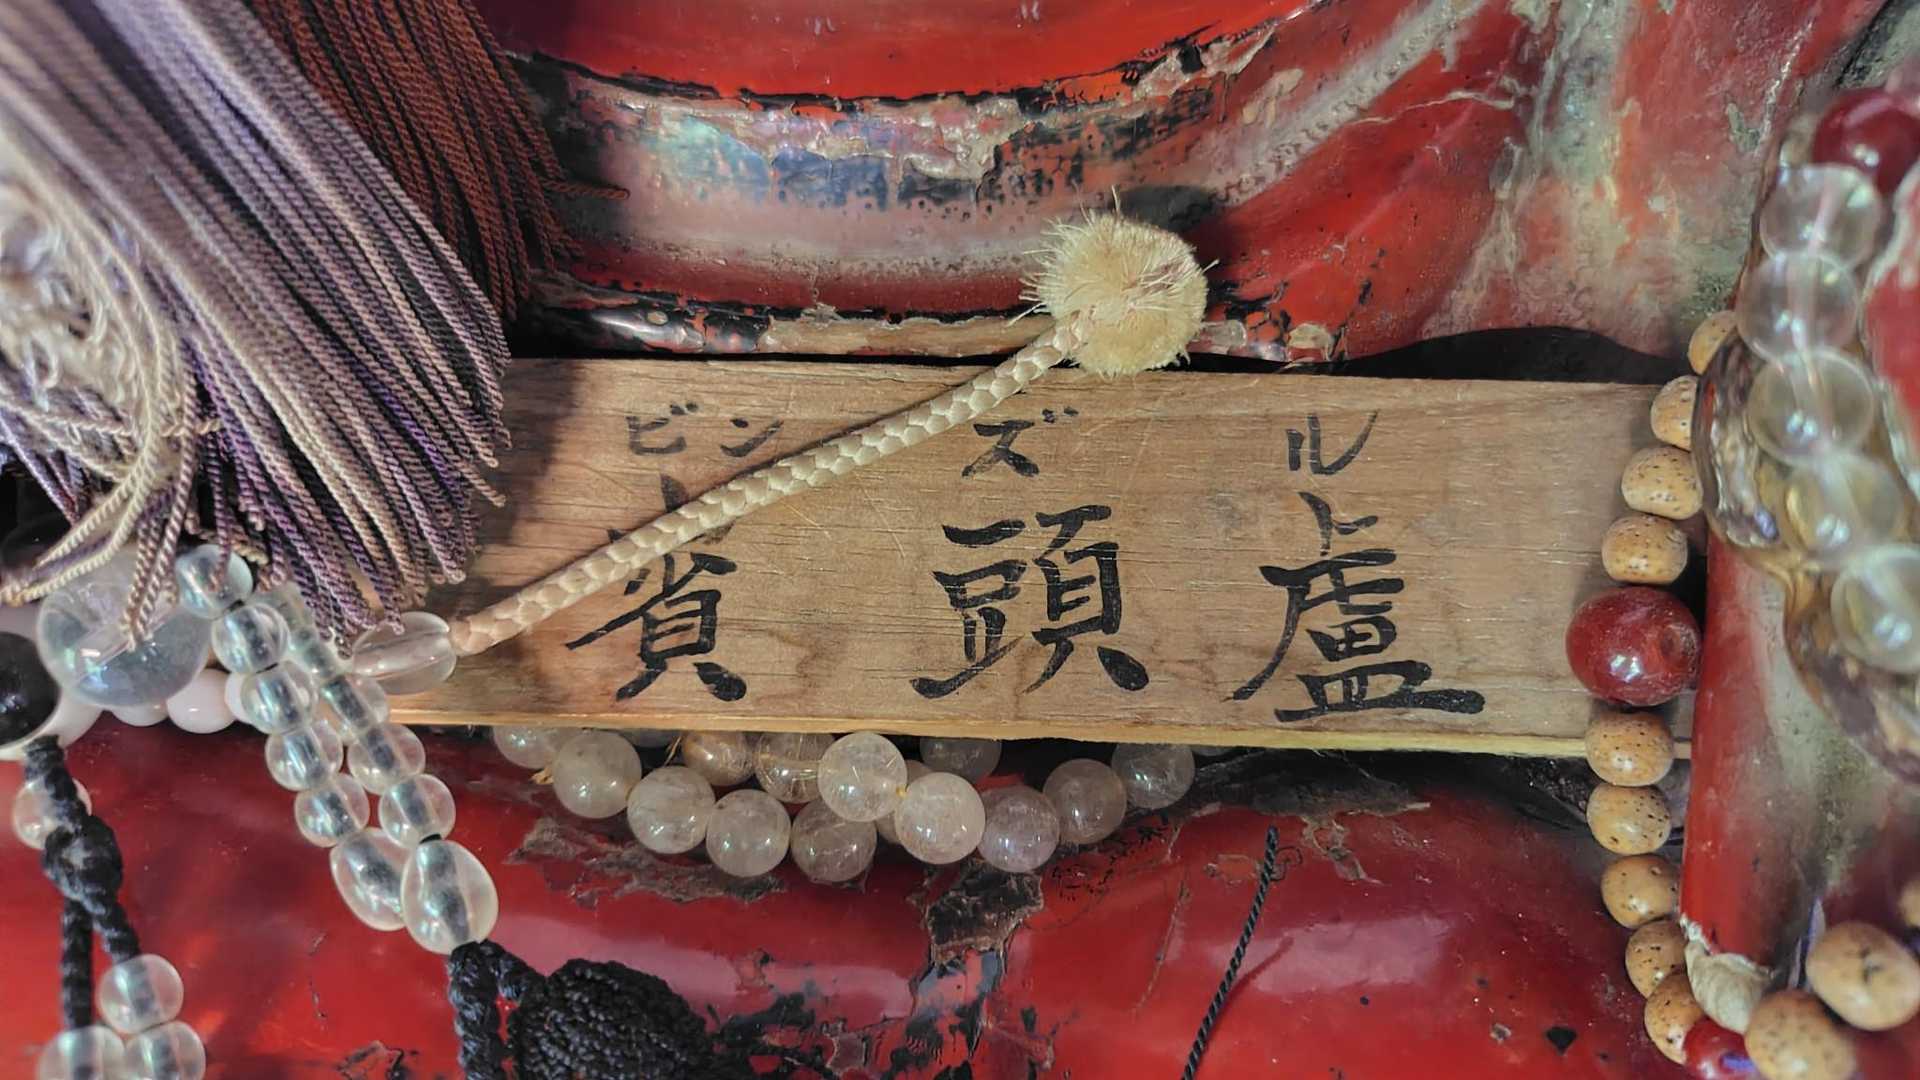 ビン ズ ル
賓頭盧